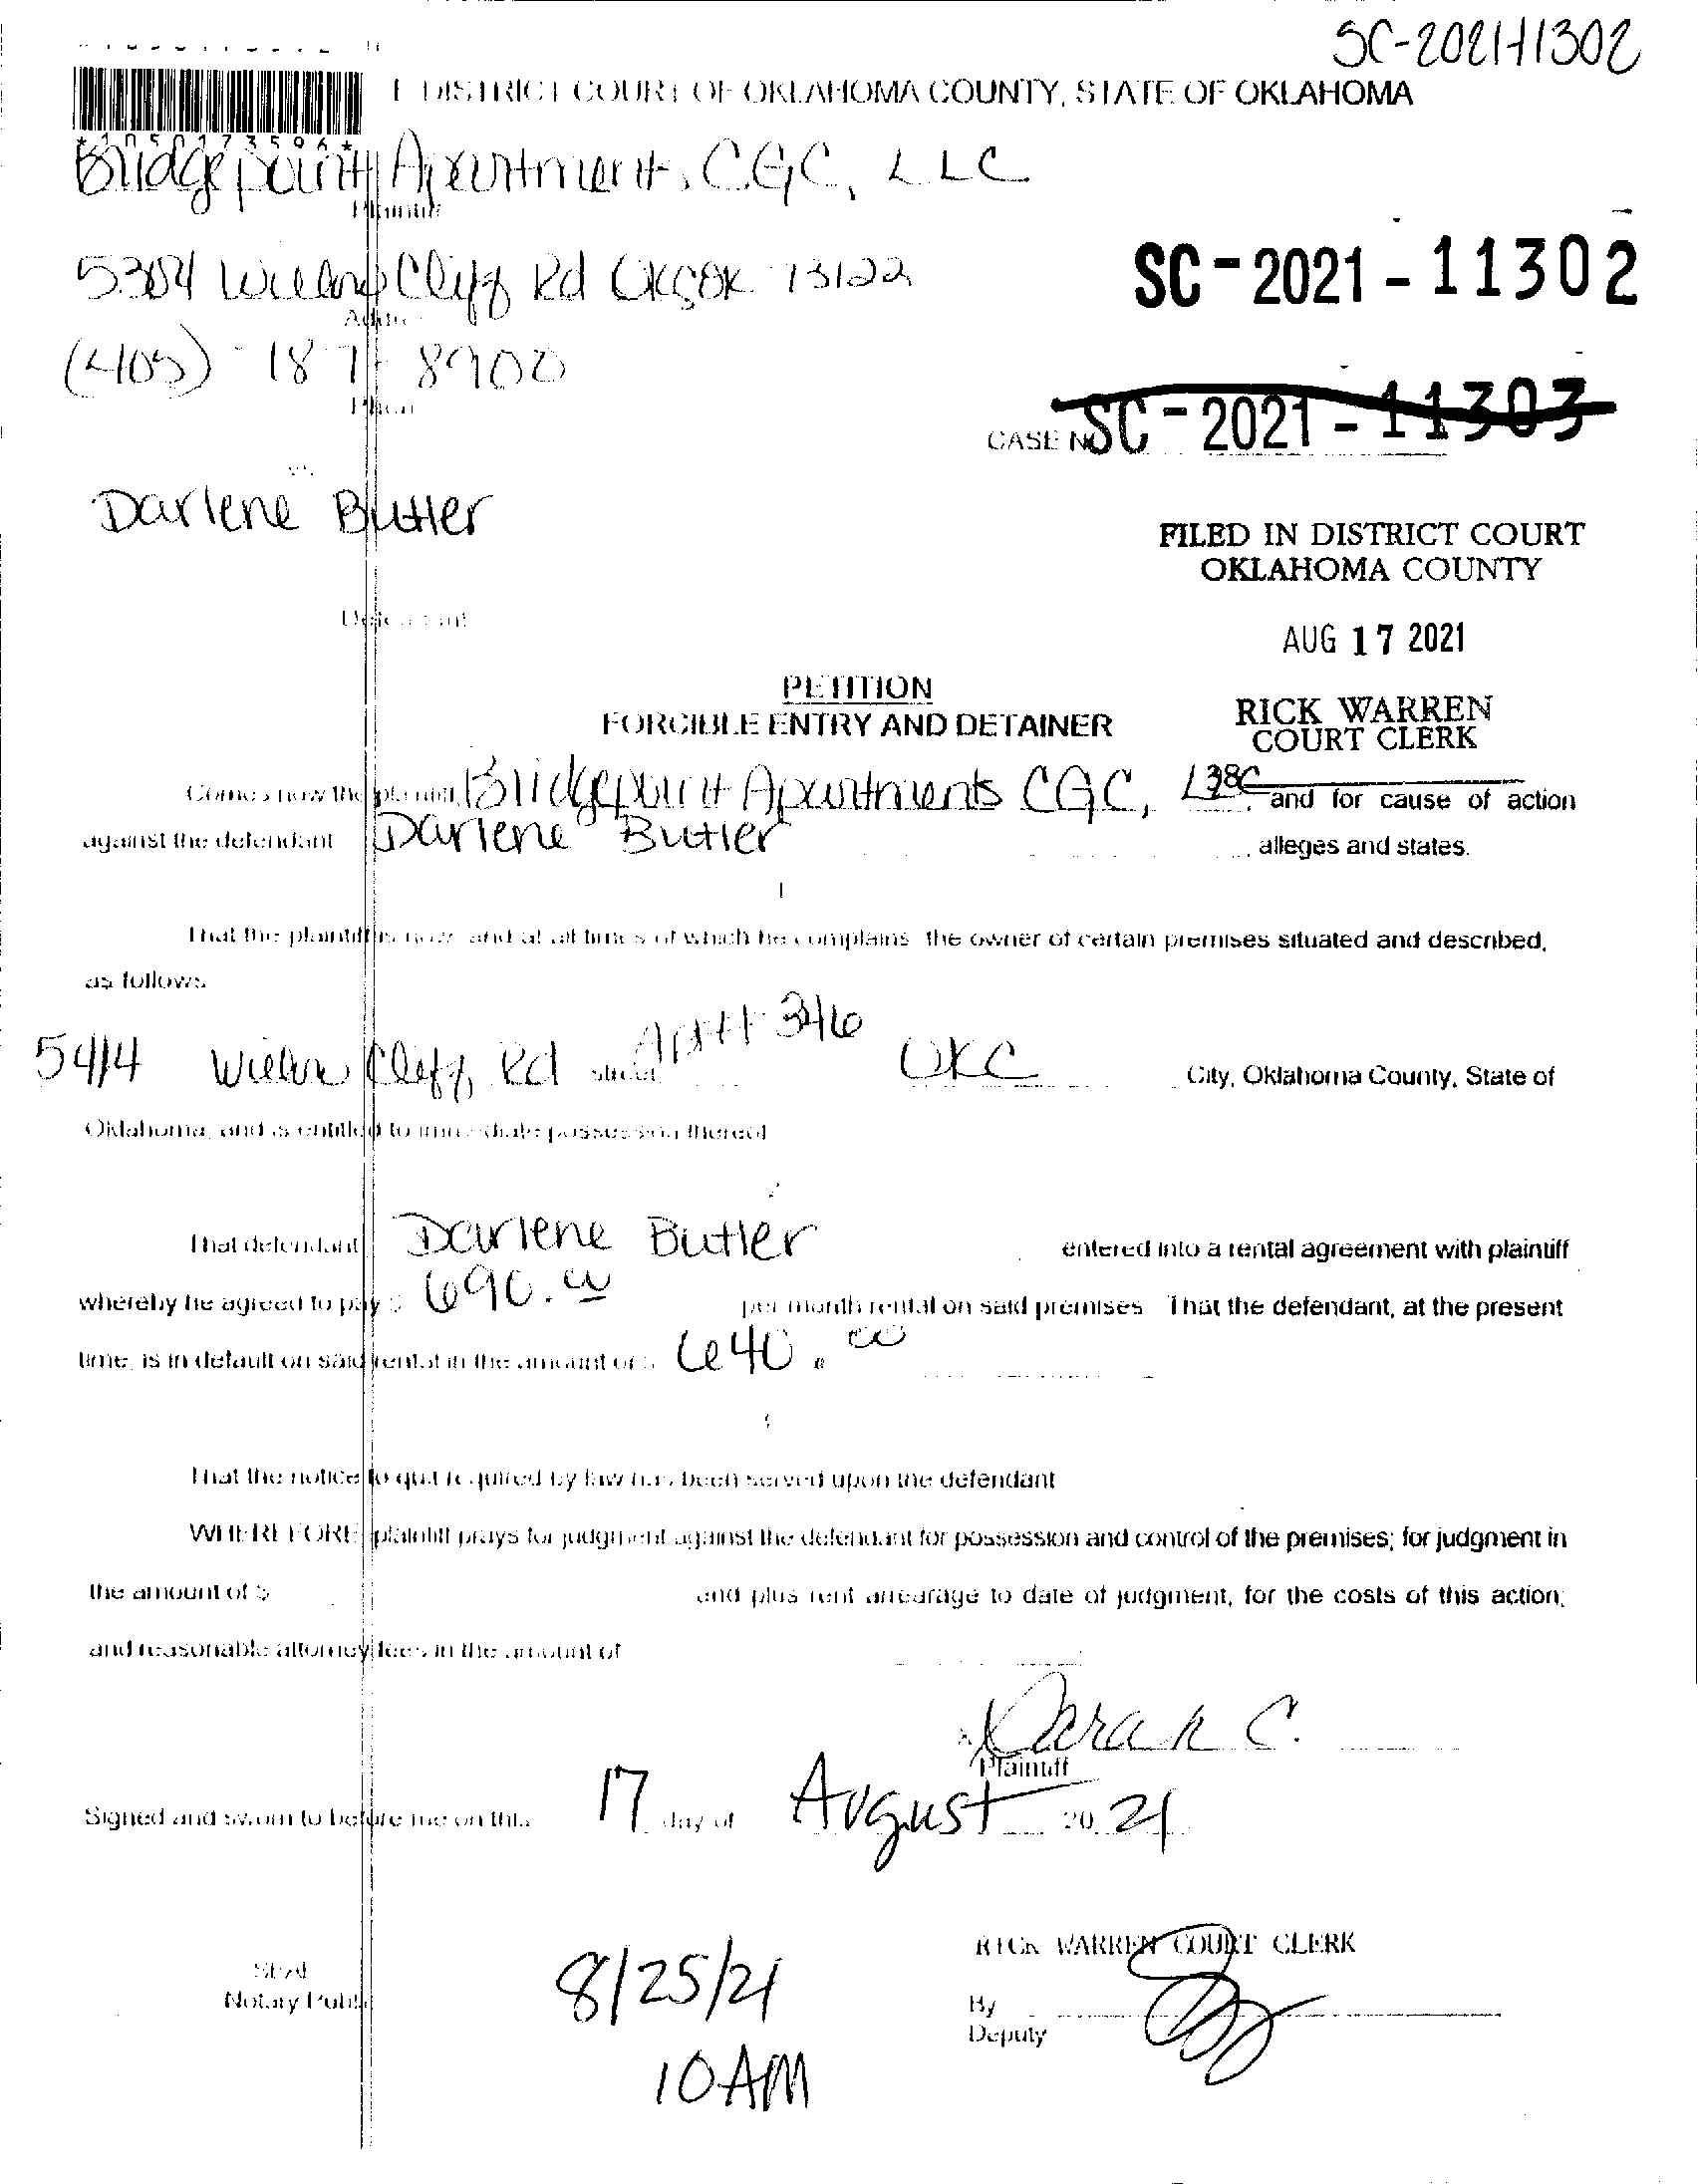 SC-2021-11302
DISTRICT COURT OF OKLAHOMA COUNTY, STATE OF OKLAHOMA
*1050173596*
Bridgepoint Apartments CGC, LLC
Plaintiff
5304 Willow Cliff Rd OKC OK 73122
SC-2021-11302
Address
(405) 787-8900
Phone
CASE NO SC-2021-11303
vs.
Darlene Butler
FILED IN DISTRICT COURT
OKLAHOMA COUNTY
Defendant
AUG 17 2021
PETITION
FORCIBLE ENTRY AND DETAINER
RICK WARREN
COURT CLERK
Comes now the plaintiff, Bridgepoint Apartments CGC, and for cause of action
against the defendant Darlene Butler, alleges and states.
That the plaintiff is now and at all times of which he complains the owner of certain premises situated and described,
as follows
5414 Willow Cliff Rd street Apt# 346 OKC City, Oklahoma County, State of
Oklahoma, and is entitled to immediate possession thereof
That defendant Darlene Butler entered into a rental agreement with plaintiff
whereby he agreed to pay $ 690.00 per month rental on said premises That the defendant, at the present
time, is in default on said rental in the amount of $ 640.00
That the notice to quit required by law has been served upon the defendant
WHEREFORE plaintiff prays for judgment against the defendant for possession and control of the premises; for judgment in
the amount of $ and plus rent arrearage to date of judgment, for the costs of this action;
and reasonable attorney fees in the amount of
x Sarah C.
Plaintiff
Signed and sworn to before me on this 17 day of August 20 21
RICK WARREN COURT CLERK
Notary Public
8/25/21
By
Deputy
10AM